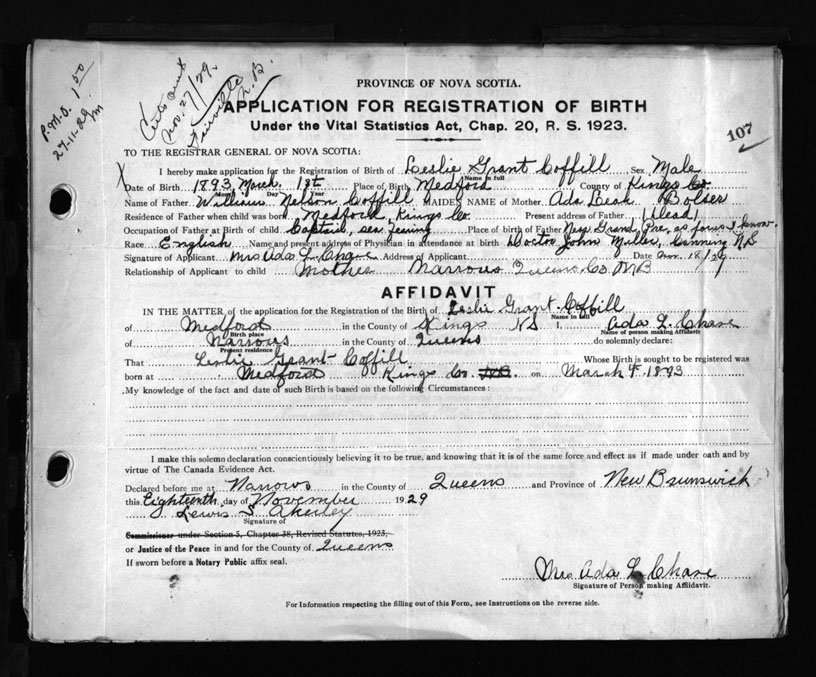 P.M.O. 1 50
27-11-29
Nov. 27/29.
Fairville
N.B.
107
PROVINCE OF NOVA SCOTIA.
APPLICATION FOR REGISTRATION OF BIRTH
Under the Vital Statistics Act, Chap. 20, R. S. 1923.
TO THE REGISTRAR GENERAL OF NOVA SCOTIA:
X I hereby make application for the Registration of Birth of Leslie Grant Coffill Sex Male
Name in full
Date of Birth 1893 March 1st Place of Birth Medford County of Kings Co.
Month Day Year
Name of Father William Nelson Coffill MAIDEN NAME of Mother Ada Leah Bolser
Residence of Father when child was born Medford, Kings Co. Present address of Father (Dead)
Occupation of Father at Birth of child Captain, sea Place of birth of Father Grand Pre, as far as I know.
Race English Name and present address of Physician in attendance at birth Doctor John Miller, Canning NS
Signature of Applicant Mrs Ada L. Chase Address of Applicant Date Nov. 18/29
Relationship of Applicant to child Mother Narrows Queens Co. NB
AFFIDAVIT
IN THE MATTER of the application for the Registration of the Birth of Leslie Grant Coffill
Name in full
of Medford in the County of Kings NS I, Ada L. Chase
Birth place Name of person making Affidavit
of Narrows in the County of Queens do solemnly declare:
Present residence
That Leslie Grant Coffill Whose Birth is sought to be registered was
born at Medford Kings Co. N.B. on March 1893
My knowledge of the fact and date of such Birth is based on the following Circumstances:
I make this solemn declaration conscientiously believing it to be true, and knowing that it is of the same force and effect as if made under oath and by
virtue of The Canada Evidence Act.
Declared before me at Narrows in the County of Queens and Province of New Brunswick
this Eighteenth day of November 1929
Lewis S. Akerley
Signature of
Commissioner under Section 5, Chapter 38, Revised Statutes, 1923,
or Justice of the Peace in and for the County of Queens
If sworn before a Notary Public affix seal.
Mrs Ada L. Chase
Signature of Person making Affidavit.
For Information respecting the filling out of this Form, see Instructions on the reverse side.